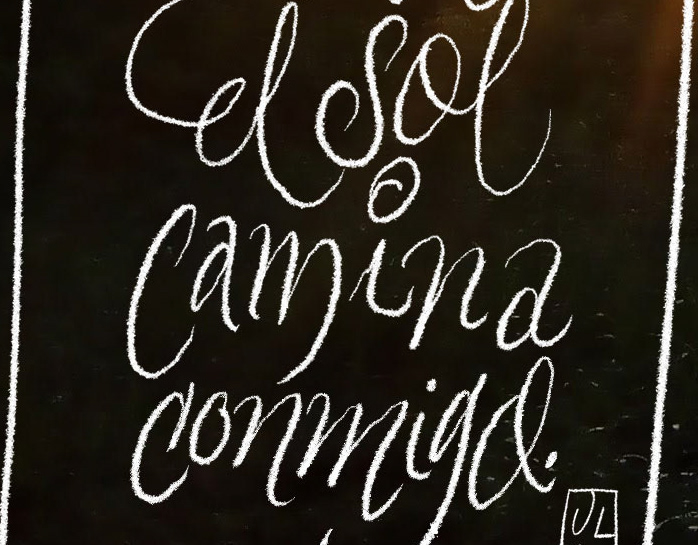 el sol
camina
conmigo.
VL